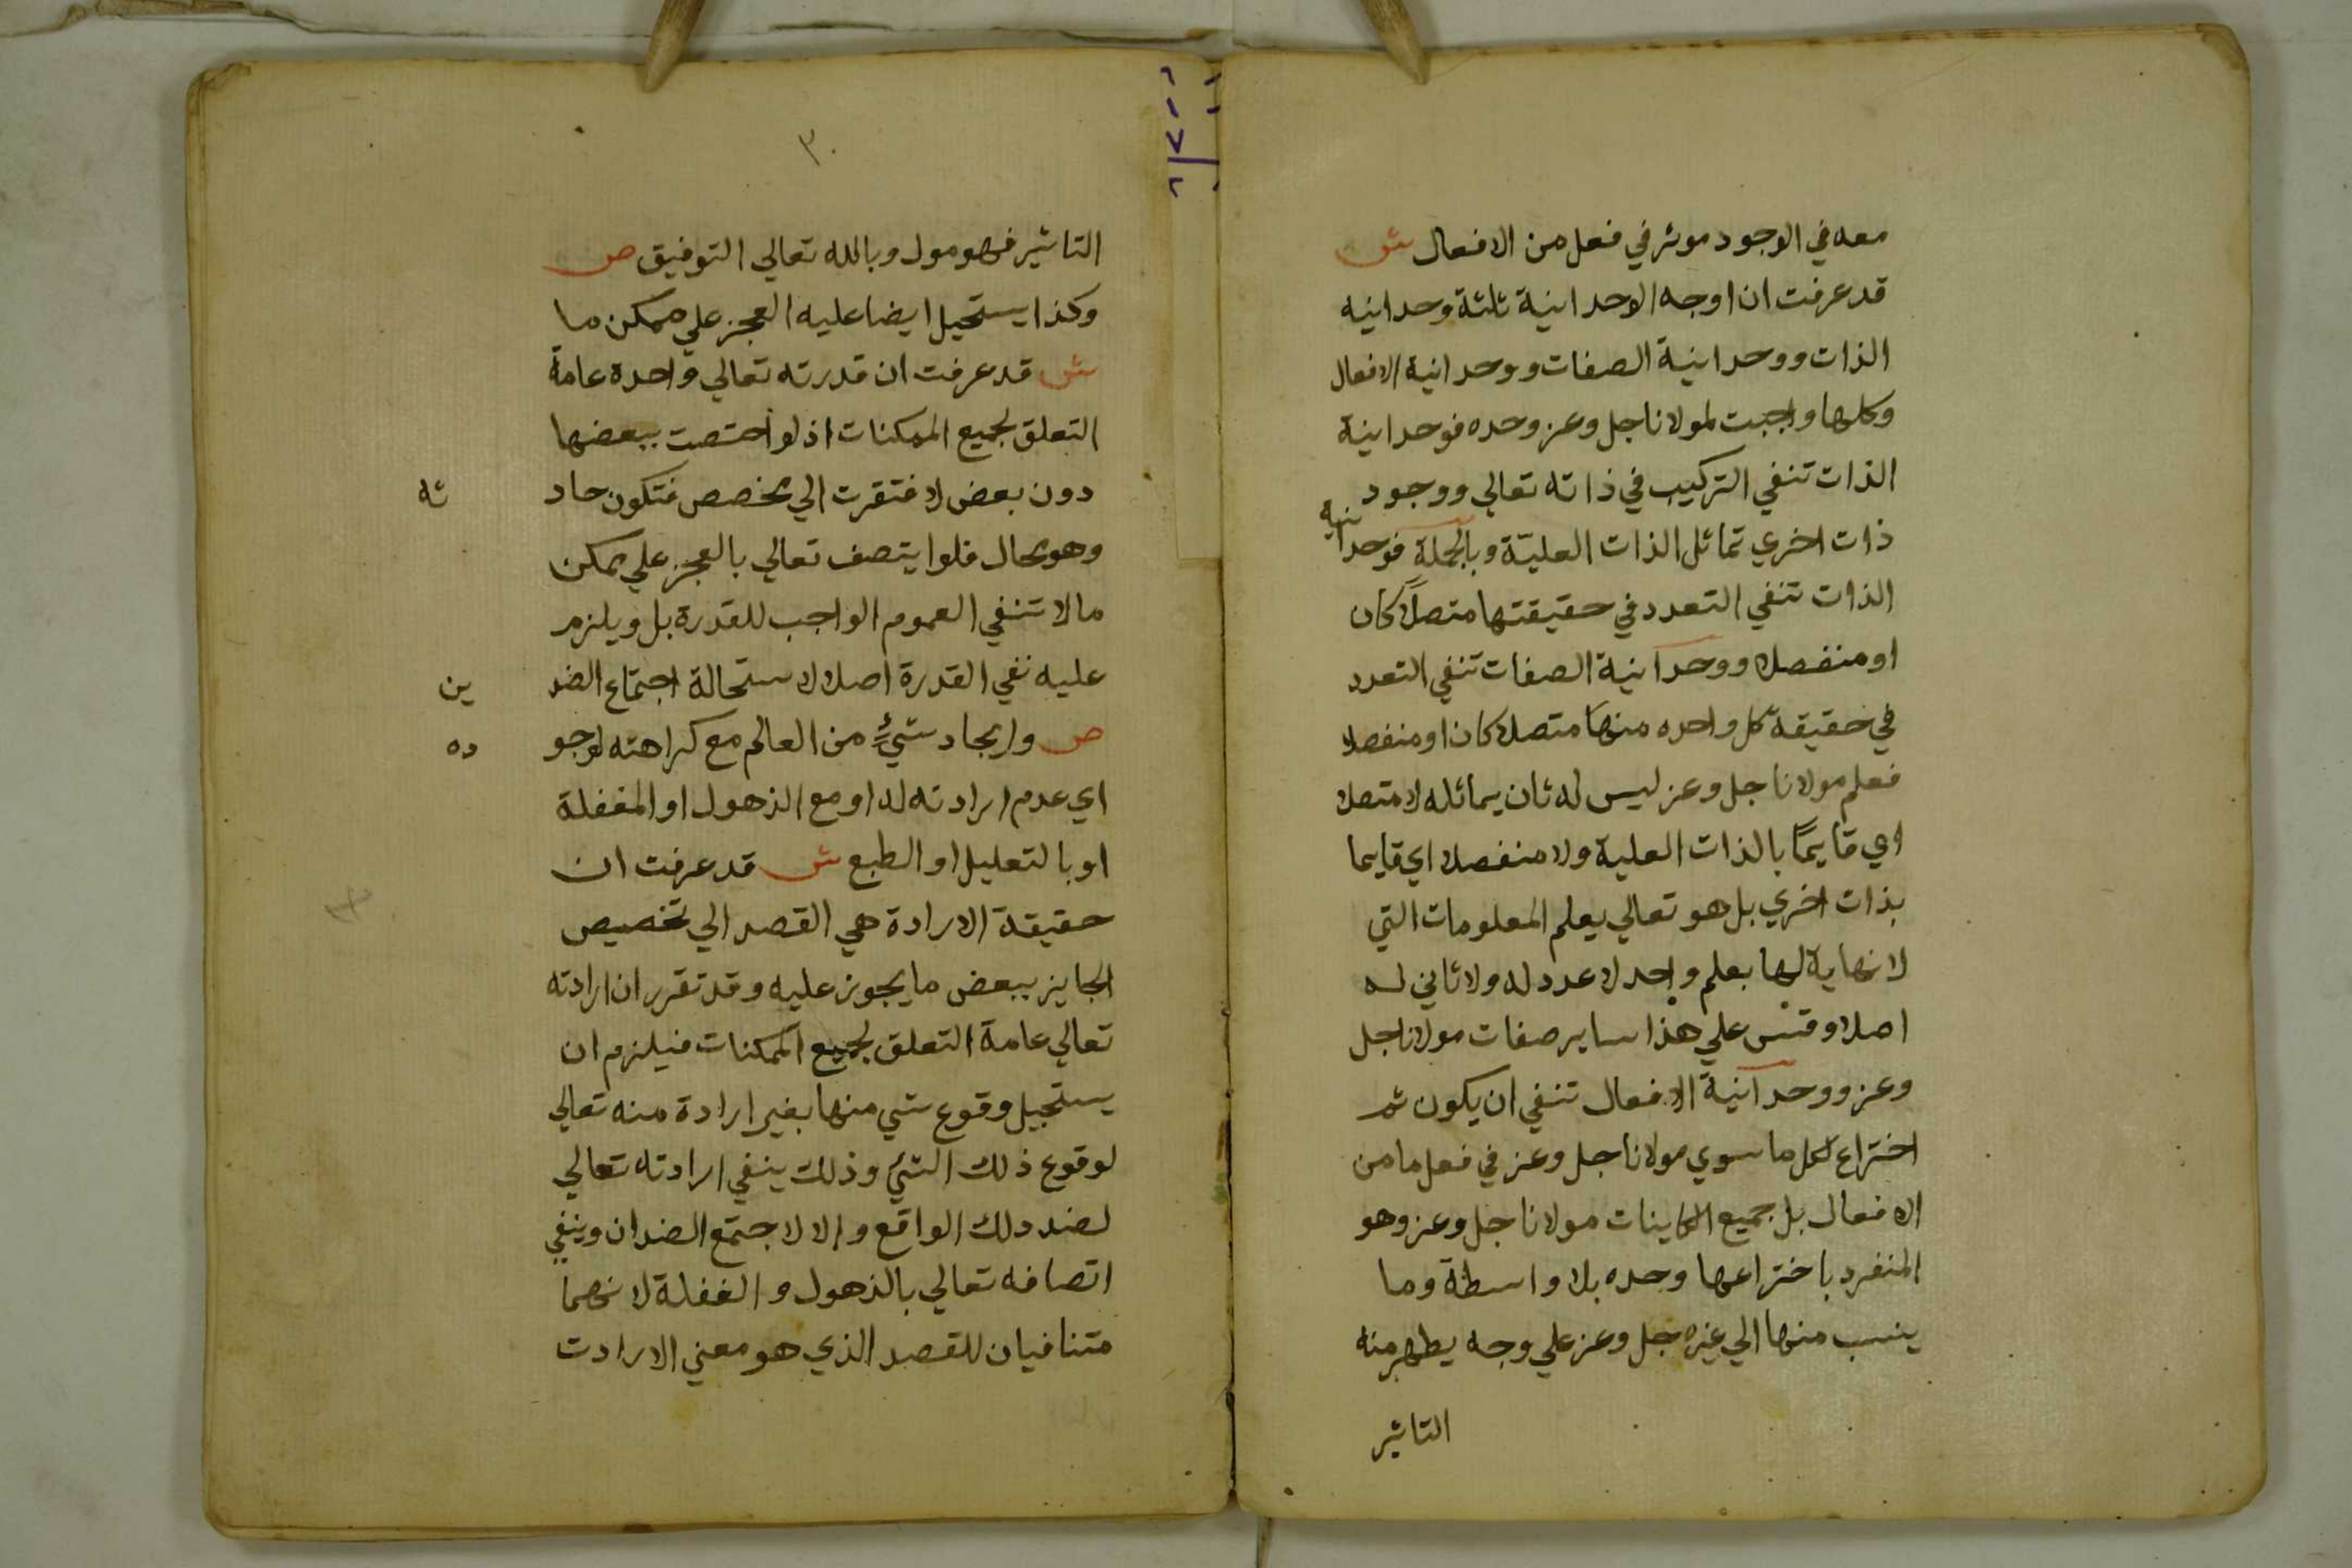 معه في الوجود موثر في فعل من الافعال ش
قد عرفت ان اوجه الوحدانية ثلثة وحدانيه
الذات ووحدانية الصفات ووحدانية الافعال
وكلها واجبت لمولانا جل وعز وحده فوحدانية
الذات تنفي التركيب في ذاته تعالي ووجود
ذات اخري تماثل الذات العلية وبالجملة فوحدانيه
الذات تنفي التعدد في حقيقتها متصلا كان
او منفصلا ووحدانية الصفات تنفي التعدد
في حقيقة كل واحده منها متصلا كان او منفصلا
فعلم مولانا جل وعز ليس له ثان يماثله لا متصلا
اي قايمًا بالذات العلية ولا منفصلا اي قايما
بذات اخري بل هو تعالي يعلم المعلومات التي
لا نهاية لها بعلم واحد لا عدد له ولا ثاني له
اصلا وقس علي هذا ساير صفات مولانا جل
وعز ووحدانية الافعال تنفي ان يكون ثم
اختراع لكل ما سوي مولانا جل وعز في فعل ما من
الافعال بل جميع الكاينات مولانا جل وعز وهو
المنفرد باختراعها وحده بلا واسطة وما
ينسب منها الي غيره جل وعز علي وجه يظهر منه
التاثير
٣٠
التاثير فهو مول وبالله تعالي التوفيق ص
وكذا يستحيل ايضا عليه العجز علي ممكن ما
ش قد عرفت ان قدرته تعالي واحدة عامة
التعلق بجميع الممكنات اذ لو اختصت ببعضها
دون بعض لافتقرت الي مخصص فتكون حاد ثه
وهو محال فلو ايتصف تعالي بالعجز علي ممكن
ما لا تنفي العموم الواجب للقدرة بل ويلزم
عليه نفي القدرة اصلا لاستحالة اجتماع الضد ين
ص وايجاد شيءٍ من العالم مع كراهته لوجو ده
اي عدم ارادته له او مع الذهول او المغفلة
او بالتعليل او الطبع ش قد عرفت ان
حقيقة الارادة هي القصد الي تخصيص
الجايز ببعض ما يجوز عليه وقد تقرر ان ارادته
تعالي عامة التعلق بجميع الممكنات فيلزم ان
يستحيل وقوع شي منها بغير ارادة منه تعالي
لوقوع ذلك الشئ وذلك ينفي ارادته تعالي
لضد دلك الواقع والا لاجتمع الضدان وينفي
اتصافه تعالي بالذهول والغفلة لانهما
متنافيان للقصد الذي هو معني الارادت